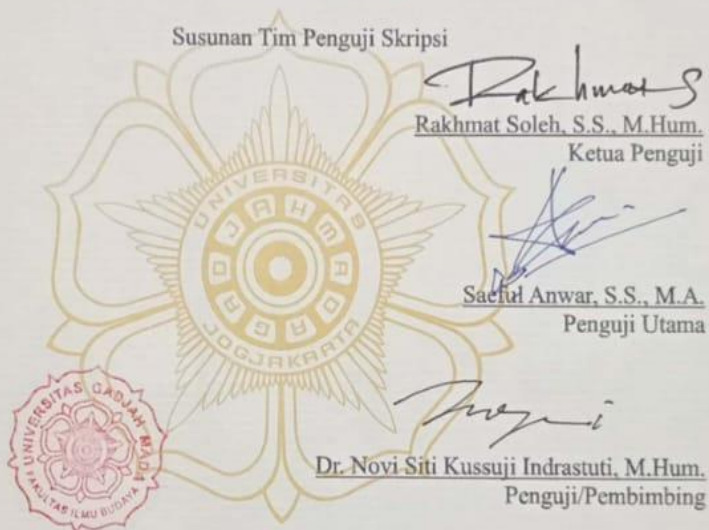 Susunan Tim Penguji Skripsi
Rakhmat S
Rakhmat Soleh, S.S., M.Hum.
Ketua Penguji
Saeful Anwar, S.S., M.A.
Penguji Utama
Dr. Novi Siti Kussuji Indrastuti, M.Hum.
Penguji/Pembimbing
UNIVERSITAS
GADJAH MADA
JOGJAKARTA
UNIVERSITAS GADJAH MADA
FAKULTAS ILMU BUDAYA